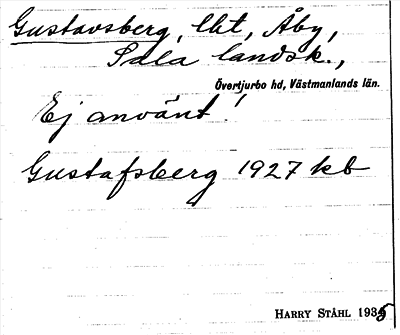 Gustavsberg, lht, Åby,
Sala landsk.,
Övertjurbo hd, Västmanlands län.
Ej använt!
Gustafsberg 1927 kb
HARRY STÅHL 1935